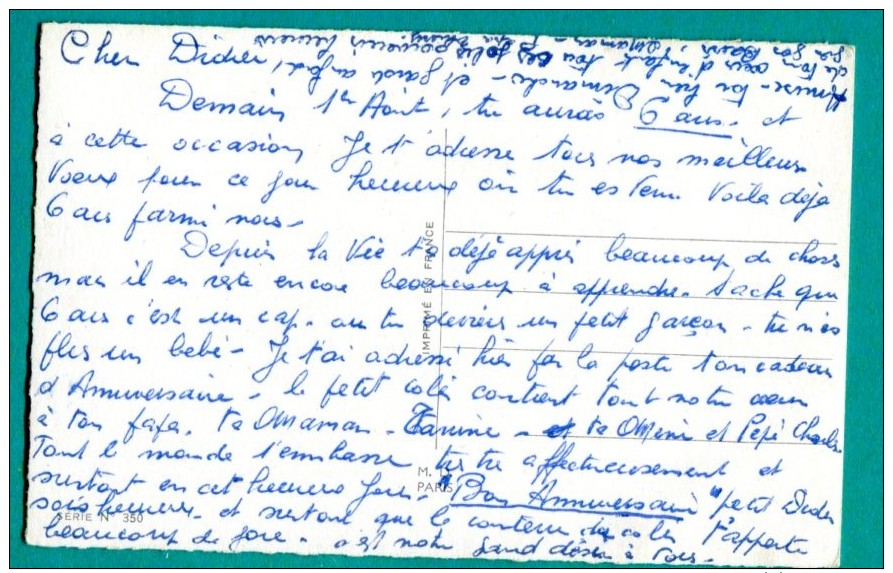 Cher Didier
Demain 1er Août, tu auras 6 ans. et
à cette occasion, Je t'adresse tous nos meilleurs
Voeux pour ce jour heureux où tu es venu. Voila déjà
6 ans parmi nous.
Depuis la Vie t'a déjà appris beaucoup de choses
mais il en reste encore beaucoup à apprendre. Sache que
6 ans c'est un cap. où tu deviens un petit garçon. tu n'es
plus un bébé. Je t'ai adressé hier par la poste ton cadeau
d'Anniversaire. le petit colis contient tout notre coeur
à ton papa. ta Maman - et ta Mémé et Pépé Charles.
Tout le monde t'embrasse très affectueusement et
surtout en cet heureux Jour. "Bon Anniversaire" petit Didier
sois heureux. et surtout que le contenu du colis t'apporte
beaucoup de joie. c'est notre grand désir à tous.
Amuse-toi bien Dimanche - et garde
de ton coeur d'enfant tou ces jolis
IMPRIMÉ EN FRANCE
M.
PARIS
SÉRIE N° 350